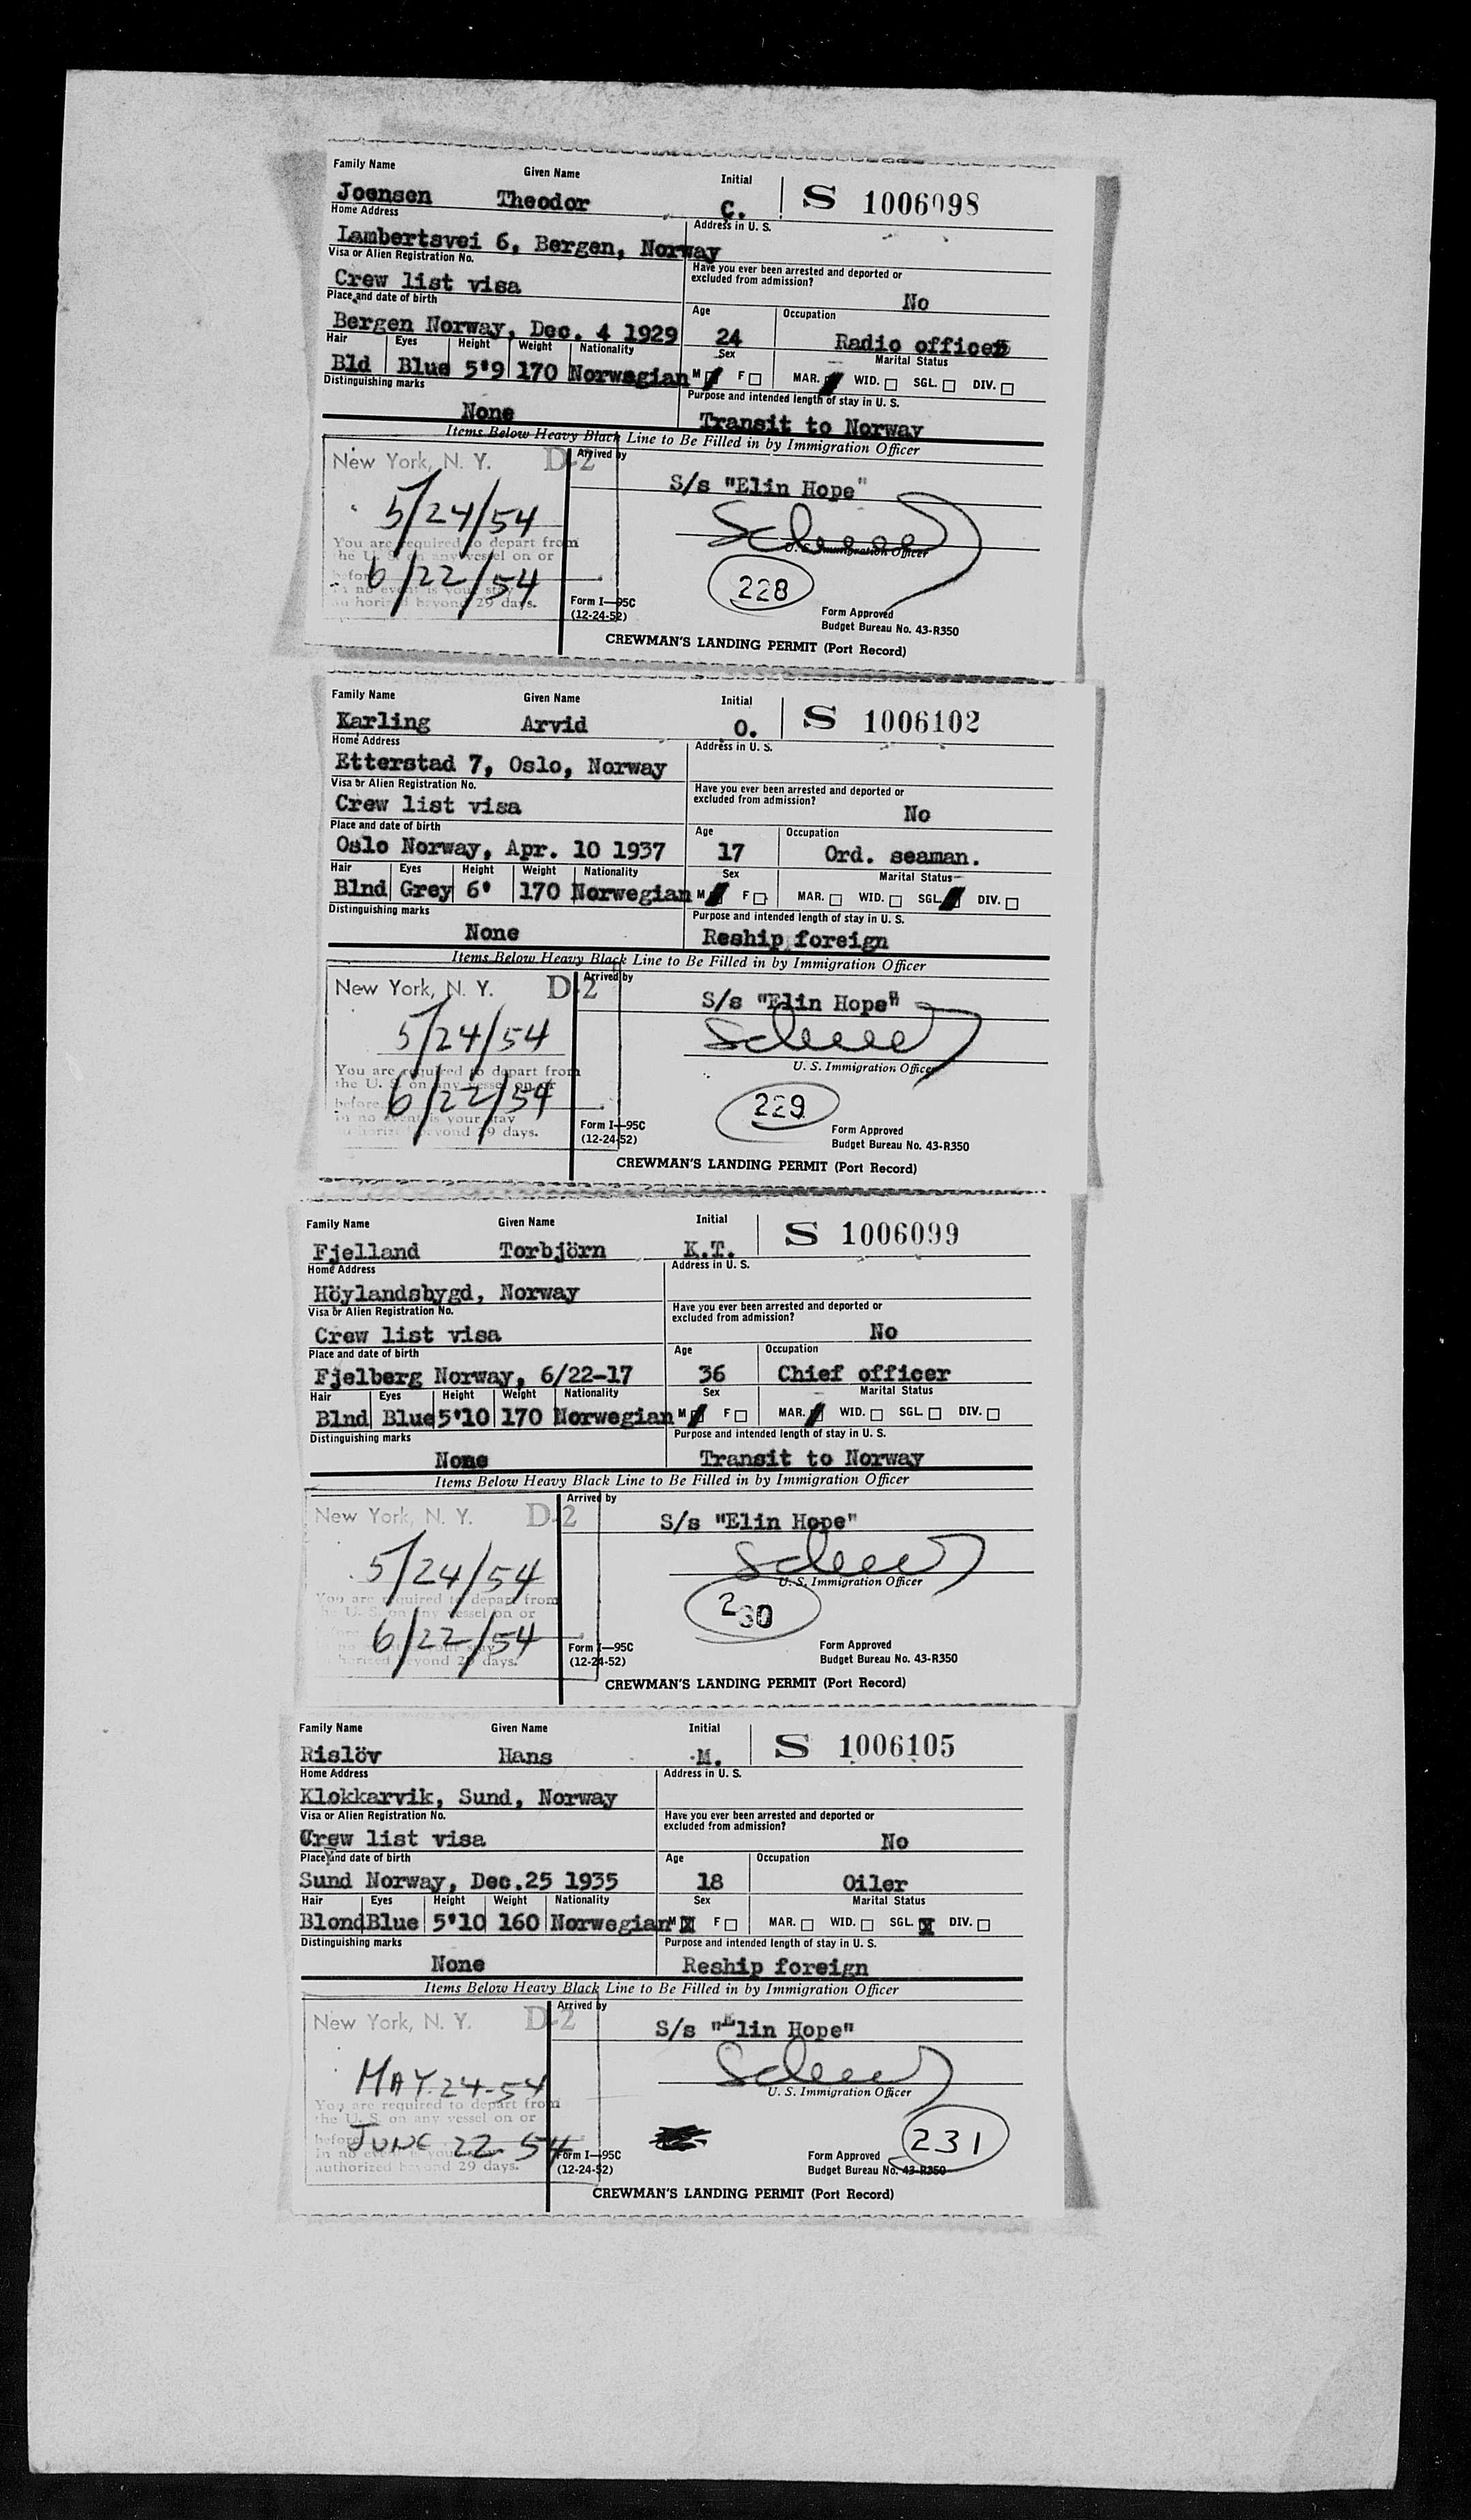 Family Name Given Name Initial
Joensen Theodor C. S 1006098
Home Address Address in U. S.
Lambertsvei 6, Bergen, Norway
Visa or Alien Registration No. Have you ever been arrested and deported or excluded from admission?
Crew list visa No
Place and date of birth Age Occupation
Bergen Norway, Dec. 4 1929 24 Radio officer
Hair Eyes Height Weight Nationality Sex Marital Status
Bld Blue 5'9 170 Norwegian M F MAR. WID. SGL. DIV.
Distinguishing marks Purpose and intended length of stay in U. S.
None Transit to Norway
Items Below Heavy Black Line to Be Filled in by Immigration Officer
New York, N. Y. D-2 Arrived by
S/s "Elin Hope"
5/24/54
You are required to depart from U. S. Immigration Officer
the U. S. on any vessel on or
before 6/22/54 228
in no event is your stay
authorized beyond 29 days. Form I—95C Form Approved
(12-24-52) Budget Bureau No. 43-R350
CREWMAN'S LANDING PERMIT (Port Record)
Family Name Given Name Initial
Karling Arvid O. S 1006102
Home Address Address in U. S.
Etterstad 7, Oslo, Norway
Visa or Alien Registration No. Have you ever been arrested and deported or excluded from admission?
Crew list visa No
Place and date of birth Age Occupation
Oslo Norway, Apr. 10 1937 17 Ord. seaman.
Hair Eyes Height Weight Nationality Sex Marital Status
Blnd Grey 6' 170 Norwegian M F MAR. WID. SGL. DIV.
Distinguishing marks Purpose and intended length of stay in U. S.
None Reship foreign
Items Below Heavy Black Line to Be Filled in by Immigration Officer
New York, N. Y. D-2 Arrived by
S/s "Elin Hope"
5/24/54
You are required to depart from U. S. Immigration Officer
the U. S. on any vessel on or
before 6/22/54 229
in no event is your stay
authorized beyond 29 days. Form I—95C Form Approved
(12-24-52) Budget Bureau No. 43-R350
CREWMAN'S LANDING PERMIT (Port Record)
Family Name Given Name Initial
Fjelland Torbjörn K.T. S 1006099
Home Address Address in U. S.
Höylandsbygd, Norway
Visa or Alien Registration No. Have you ever been arrested and deported or excluded from admission?
Crew list visa No
Place and date of birth Age Occupation
Fjelberg Norway, 6/22-17 36 Chief officer
Hair Eyes Height Weight Nationality Sex Marital Status
Blnd Blue 5'10 170 Norwegian M F MAR. WID. SGL. DIV.
Distinguishing marks Purpose and intended length of stay in U. S.
None Transit to Norway
Items Below Heavy Black Line to Be Filled in by Immigration Officer
New York, N. Y. D-2 Arrived by
S/s "Elin Hope"
5/24/54
You are required to depart from U. S. Immigration Officer
the U. S. on any vessel on or
before 6/22/54 230
in no event is your stay
authorized beyond 29 days. Form I—95C Form Approved
(12-24-52) Budget Bureau No. 43-R350
CREWMAN'S LANDING PERMIT (Port Record)
Family Name Given Name Initial
Rislöv Hans M. S 1006105
Home Address Address in U. S.
Klokkarvik, Sund, Norway
Visa or Alien Registration No. Have you ever been arrested and deported or excluded from admission?
Crew list visa No
Place and date of birth Age Occupation
Sund Norway, Dec.25 1935 18 Oiler
Hair Eyes Height Weight Nationality Sex Marital Status
Blond Blue 5'10 160 Norwegian M X F MAR. WID. SGL. X DIV.
Distinguishing marks Purpose and intended length of stay in U. S.
None Reship foreign
Items Below Heavy Black Line to Be Filled in by Immigration Officer
New York, N. Y. D-2 Arrived by
S/s "Elin Hope"
MAY-24-54
You are required to depart from U. S. Immigration Officer
the U. S. on any vessel on or
before JUNE 22-54 231
In no event is your stay Form I—95C Form Approved
authorized beyond 29 days. (12-24-52) Budget Bureau No. 43-R350
CREWMAN'S LANDING PERMIT (Port Record)